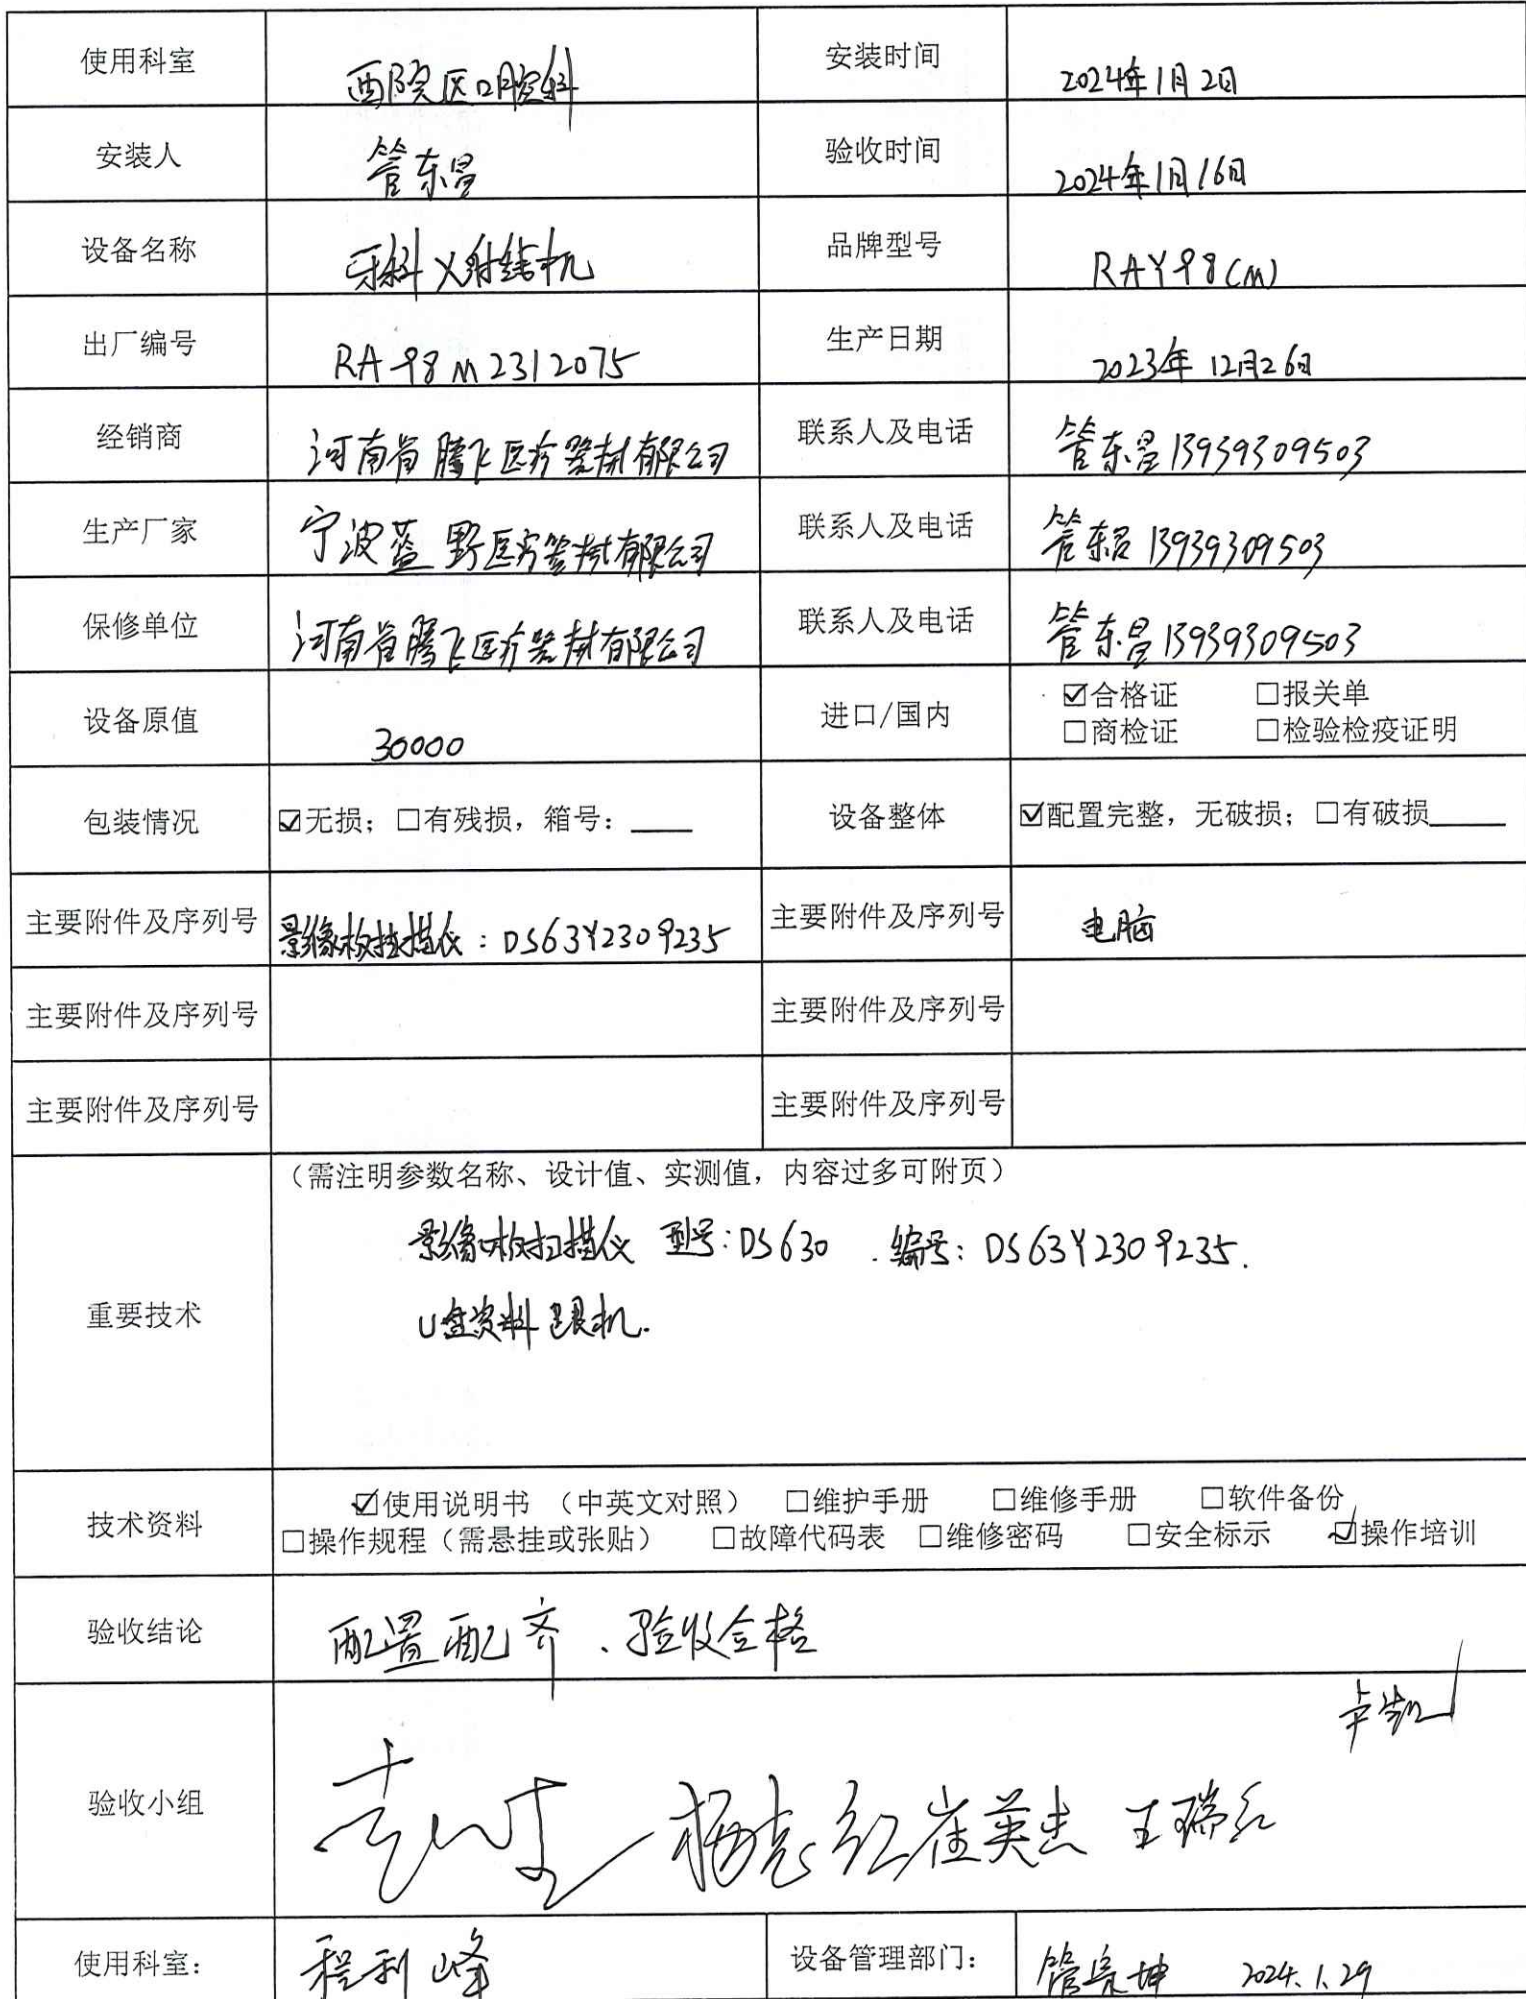 使用科室 西院区口腔科 安装时间 2024年1月2日
安装人 管东昌 验收时间 2024年1月16日
设备名称 牙科X射线机 品牌型号 RAY98(M)
出厂编号 RA98M2312075 生产日期 2023年12月26日
经销商 河南省腾飞医疗器械有限公司 联系人及电话 管东昌13939309503
生产厂家 宁波蓝野医疗器械有限公司 联系人及电话 管东昌13939309503
保修单位 河南省腾飞医疗器械有限公司 联系人及电话 管东昌13939309503
设备原值 30000 进口/国内 ☑合格证 □报关单
□商检证 □检验检疫证明
包装情况 ☑无损；□有残损，箱号：____ 设备整体 ☑配置完整，无破损；□有破损____
主要附件及序列号 影像板扫描仪：DS63Y2309235 主要附件及序列号 电脑
主要附件及序列号 主要附件及序列号
主要附件及序列号 主要附件及序列号
（需注明参数名称、设计值、实测值，内容过多可附页）
影像板扫描仪 型号：DS630 . 编号：DS63Y2309235.
重要技术
U盘资料跟机.
技术资料 ☑使用说明书 （中英文对照） □维护手册 □维修手册 □软件备份
□操作规程（需悬挂或张贴） □故障代码表 □维修密码 □安全标示 ☑操作培训
验收结论 配置配齐、验收合格
验收小组 崔英杰 王瑞红
使用科室： 程利峰 设备管理部门： 2024.1.29